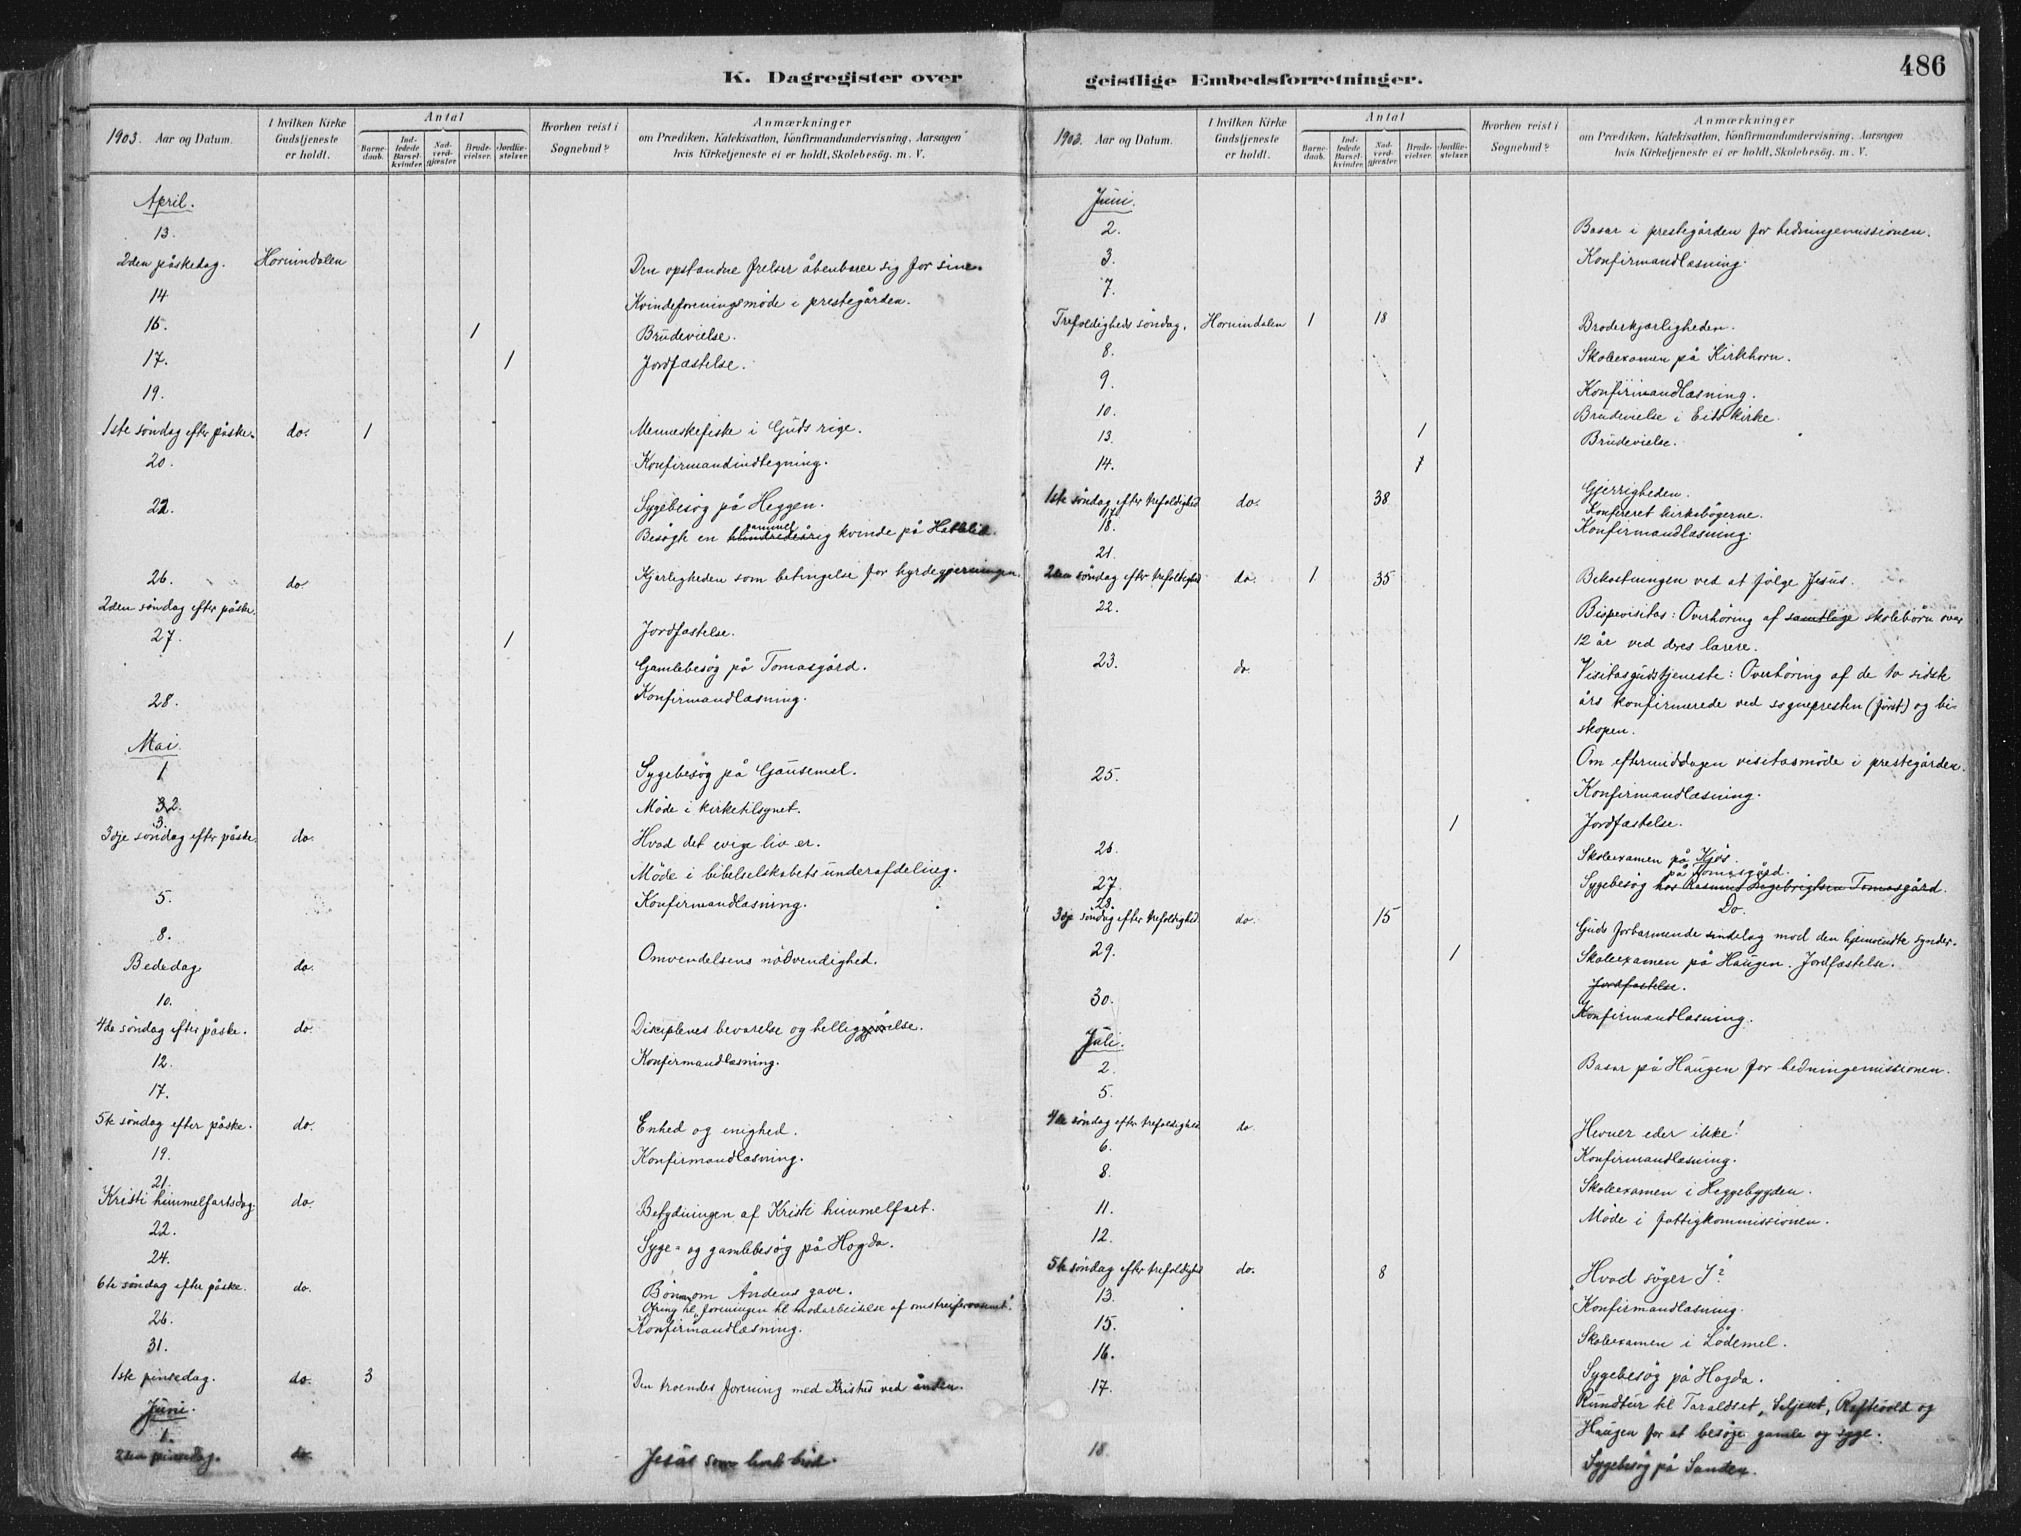 K. Dagregister over geistlige Embedsforretninger.
486
1903. Aar og Datum.
I hvilken Kirke Gudstjeneste er holdt.
Antal
Barnedaab.
Indledede Barselkvinder.
Nadverdgjester.
Brudevielser.
Jordfæstelser.
Hvorhen reist i Sognebud?
Anmærkninger
om Prædiken, Katekisation, Konfirmandundervisning, Aarsagen
hvis Kirketjeneste ei er holdt, Skolebesög. m. V.
April.
13.
2den påskedag. Hornindalen Den opstandne frelser åbenbarer sig for sine.
14 Kvindeforeningsmøde i prestegården.
15. 1 Brudevielse.
17. 1 Jordfæstelse.
19.
1ste søndag efter påske. do. 1 Menneskefiske i Guds rige.
20. Konfirmandindtegning.
22. Sygebesøg på Heggen.
Besøgte en gammel kvinde på
26. do Kjærligheden som betingelse for hyrdegjerningen.
2den søndag efter påske.
27. 1 Jordfæstelse.
Gamlebesøg på Tomasgård.
28. Konfirmandlæsning.
Mai.
1 Sygebesøg på Gausemel.
2. Møde i kirketilsynet.
3.
3dje søndag efter påske. do. Hvad det evige liv er.
Møde i bibelselskabets underafdeling.
5. Konfirmandlæsning.
8.
Bededag do. Omvendelsens nødvendighed.
10.
4de søndag efter påske. do. Disciplenes bevarelse og helliggjørelse.
12. Konfirmandlæsning.
17.
5te søndag efter påske. do. Enhed og enighed.
19. Konfirmandlæsning.
21.
Kristi himmelfartsdag. do. Betydningen af Kristi himmelfart.
22. Syge- og gamlebesøg på Hogda.
24.
6te søndag efter påske. do. Bøn om Åndens gave.
Ofring til "foreningen til modarbeidelse af omstreifervæsenet".
26. Konfirmandlæsning.
31.
1ste pinsedag. do. 3 Den troendes forening med Kristus ved ånden.
Juni.
1.
2den pinsedag. do. Jesus som
1903. Aar og Datum.
I hvilken Kirke Gudstjeneste er holdt.
Antal
Barnedaab.
Indledede Barselkvinder.
Nadverdgjester.
Brudevielser.
Jordfæstelser.
Hvorhen reist i Sognebud?
Anmærkninger
om Prædiken, Katekisation, Konfirmandundervisning, Aarsagen
hvis Kirketjeneste ei er holdt, Skolebesög. m. V.
Juni.
2. Basar i prestegården for hedningemissionen.
3. Konfirmandlæsning.
7.
Trefoldigheds søndag. Hornindalen 1 18 Broderkjærligheden.
8. Skoleexamen på Kirkhorn.
9. Konfirmandlæsning.
10. Brudevielse i Eids kirke.
13. 1 Brudevielse.
14. 1
1ste søndag efter trefoldighed do. 38 Gjerrigheden.
17 Konfereret kirkebøgerne.
18. Konfirmandlæsning.
21.
2den søndag efter trefoldighed do. 1. 35 Bekostningen ved at følge Jesus.
22. Bispevisitas: Overhøring af samtlige skolebørn over
12 år ved deres lærere.
23. do Visitasgudstjeneste: Overhøring af de 10 sidste
års konfirmerede ved sognepresten (først) og bi-
skopen.
Om eftermiddagen visitasmøde i prestegården.
25. Konfirmandlæsning.
1 Jordfæstelse.
26. Skoleexamen på Kjøs.
på Tomasgård.
27. Sygebesøg hos Rasmus Ingebrigtsen Tomasgård.
28. Do.
3dje søndag efter trefoldighed do. 15 Guds forbarmende sindelag mod den hjemvendte synder.
29. 1 Skoleexamen på Haugen. Jordfæstelse.
Jordfæstelse.
30. Konfirmandlæsning.
Juli.
2. Basar på Haugen for hedningemissionen.
5.
4de søndag efter trefoldighed do. Hevner eder ikke!
6. Konfirmandlæsning.
8. Skoleexamen i Heggebygden.
11. Møde i fattigkommissionen.
12.
5te søndag efter trefoldighed do. 8 Hvad søger I?
13. Konfirmandlæsning.
15. Skoleexamen i Lødemel.
16. Sygebesøg på Hogda.
17. Rundtur til Taraldset, Seljeset, Raftevold og
Haugen for at besøge gamle og syge.
18. Sygebesøg på Sanden.